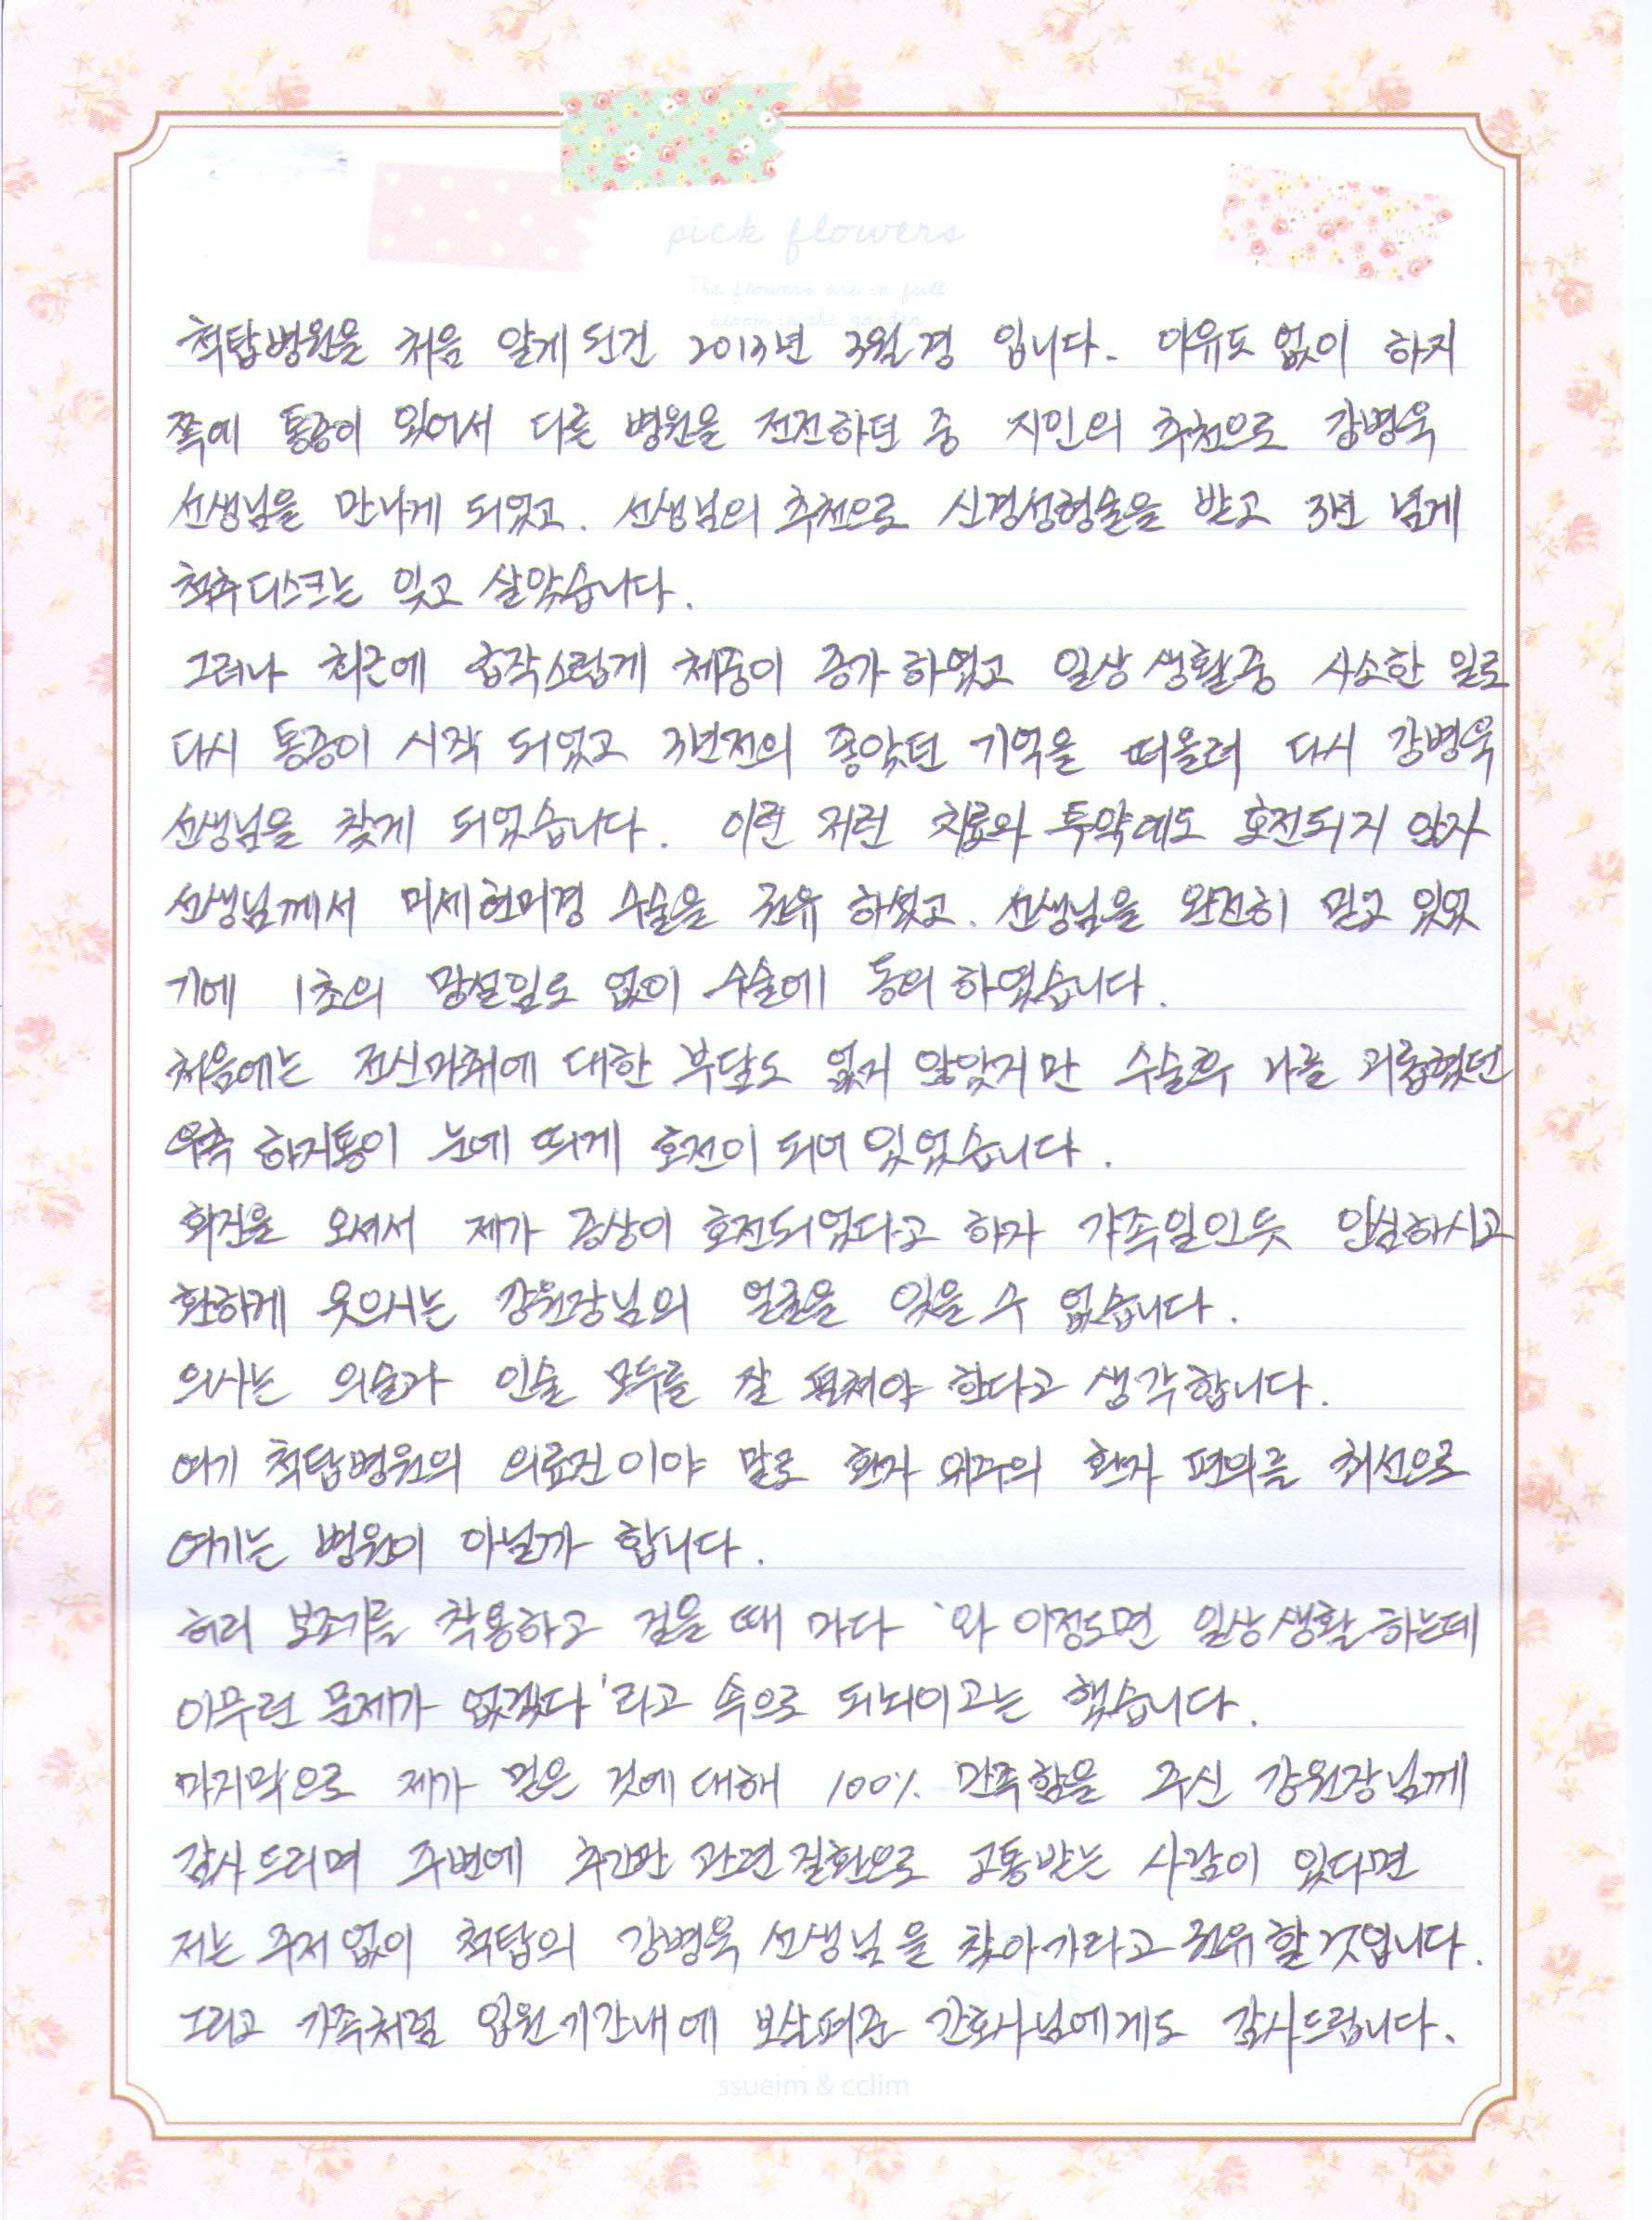 pick flowers
The flowers are in full
bloom in the garden
척탑병원을 처음 알게 된건 2013년 3월경 입니다. 이유도 없이 하지
쪽에 통증이 있어서 다른 병원을 전전하던 중 지인의 추천으로 강병욱
선생님을 만나게 되었고. 선생님의 추천으로 신경성형술을 받고 3년 넘게
척추디스크는 잊고 살았습니다.
그러나 최근에 갑작스럽게 체중이 증가 하였고 일상생활중 사소한 일로
다시 통증이 시작 되었고 3년전의 좋았던 기억을 떠올려 다시 강병욱
선생님을 찾게 되었습니다. 이런 저런 치료와 투약에도 호전되지 않자
선생님께서 미세현미경 수술을 권유 하셨고. 선생님을 완전히 믿고 있었
기에 1초의 망설임도 없이 수술에 동의 하였습니다.
처음에는 전신마취에 대한 부담도 없지 않았지만 수술후 나를 괴롭혔던
우측 하지통이 눈에 띄게 호전이 되어 있었습니다.
회진을 오셔서 제가 증상이 호전되었다고 하자 가족일인듯 안심하시고
환하게 웃으시는 강원장님의 얼굴을 잊을 수 없습니다.
의사는 의술과 인술 모두를 잘 펼쳐야 한다고 생각합니다.
여기 척탑병원의 의료진이야 말로 환자 위주의 환자 편의를 최선으로
여기는 병원이 아닐까 합니다.
허리 보조기를 착용하고 걸을 때 마다 '와 이정도면 일상생활 하는데
아무런 문제가 없겠다'라고 속으로 되뇌이고는 했습니다.
마지막으로 제가 믿은 것에 대해 100% 만족함을 주신 강원장님께
감사드리며 주변에 추간판 관련 질환으로 고통받는 사람이 있다면
저는 주저없이 척탑의 강병욱 선생님을 찾아가라고 권유할것입니다.
그리고 가족처럼 입원기간내에 보살펴준 간호사님에게도 감사드립니다.
ssueim & cclim